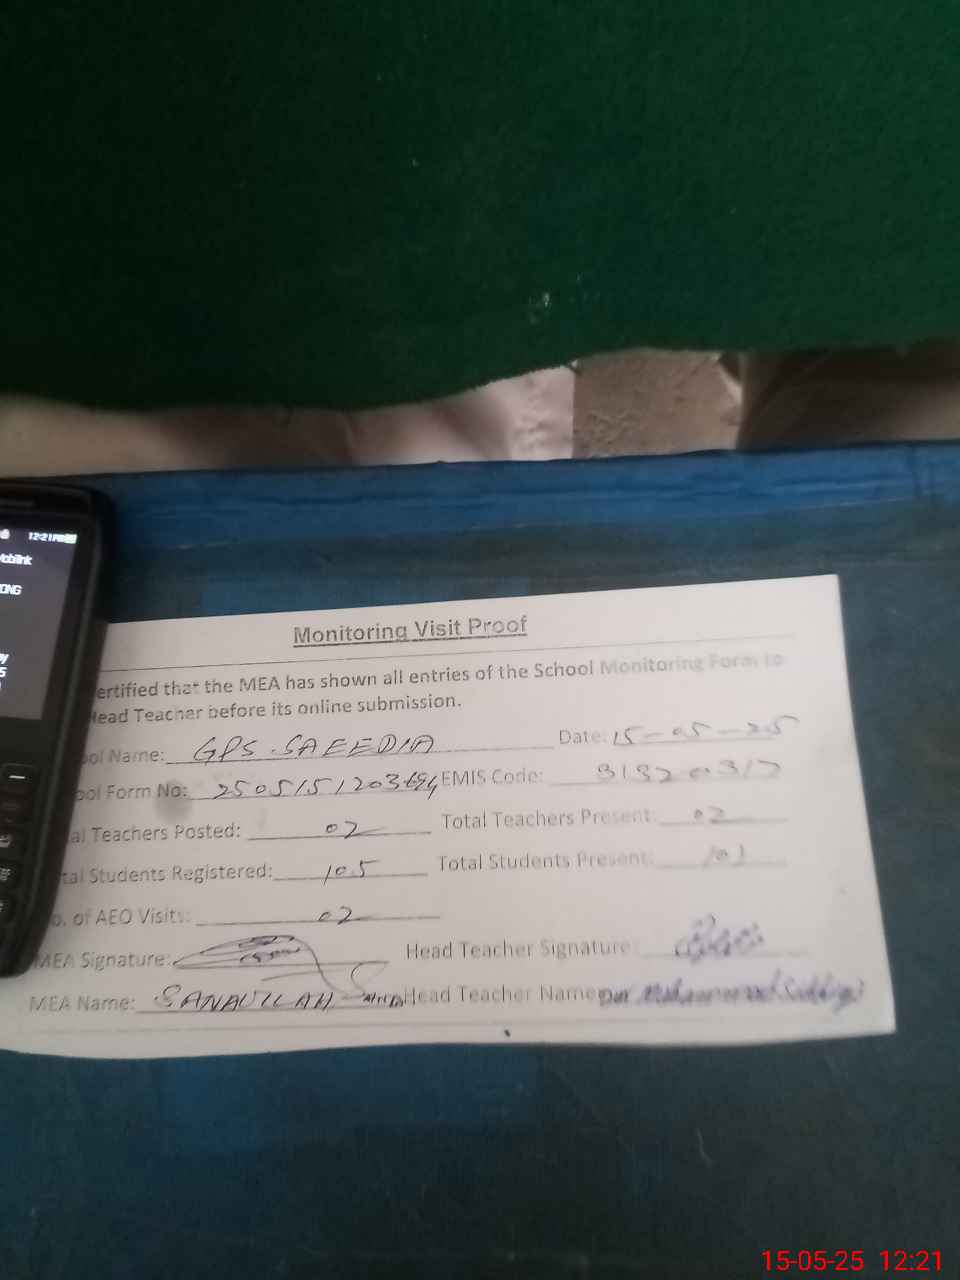 12:21PM
Mobilink
ONG
Monitoring Visit Proof
ertified that the MEA has shown all entries of the School Monitoring Form to
Head Teacher before its online submission.
ool Name: GPS. SAEEDIA Date: 15-05-25
ool Form No: EMIS Code:
al Teachers Posted: 02 Total Teachers Present: 02
tal Students Registered: 105 Total Students Present: 101
o. of AEO Visits: 02
MEA Signature: Head Teacher Signature:
MEA Name: SANAULLAH Head Teacher Name:
15-05-25 12:21